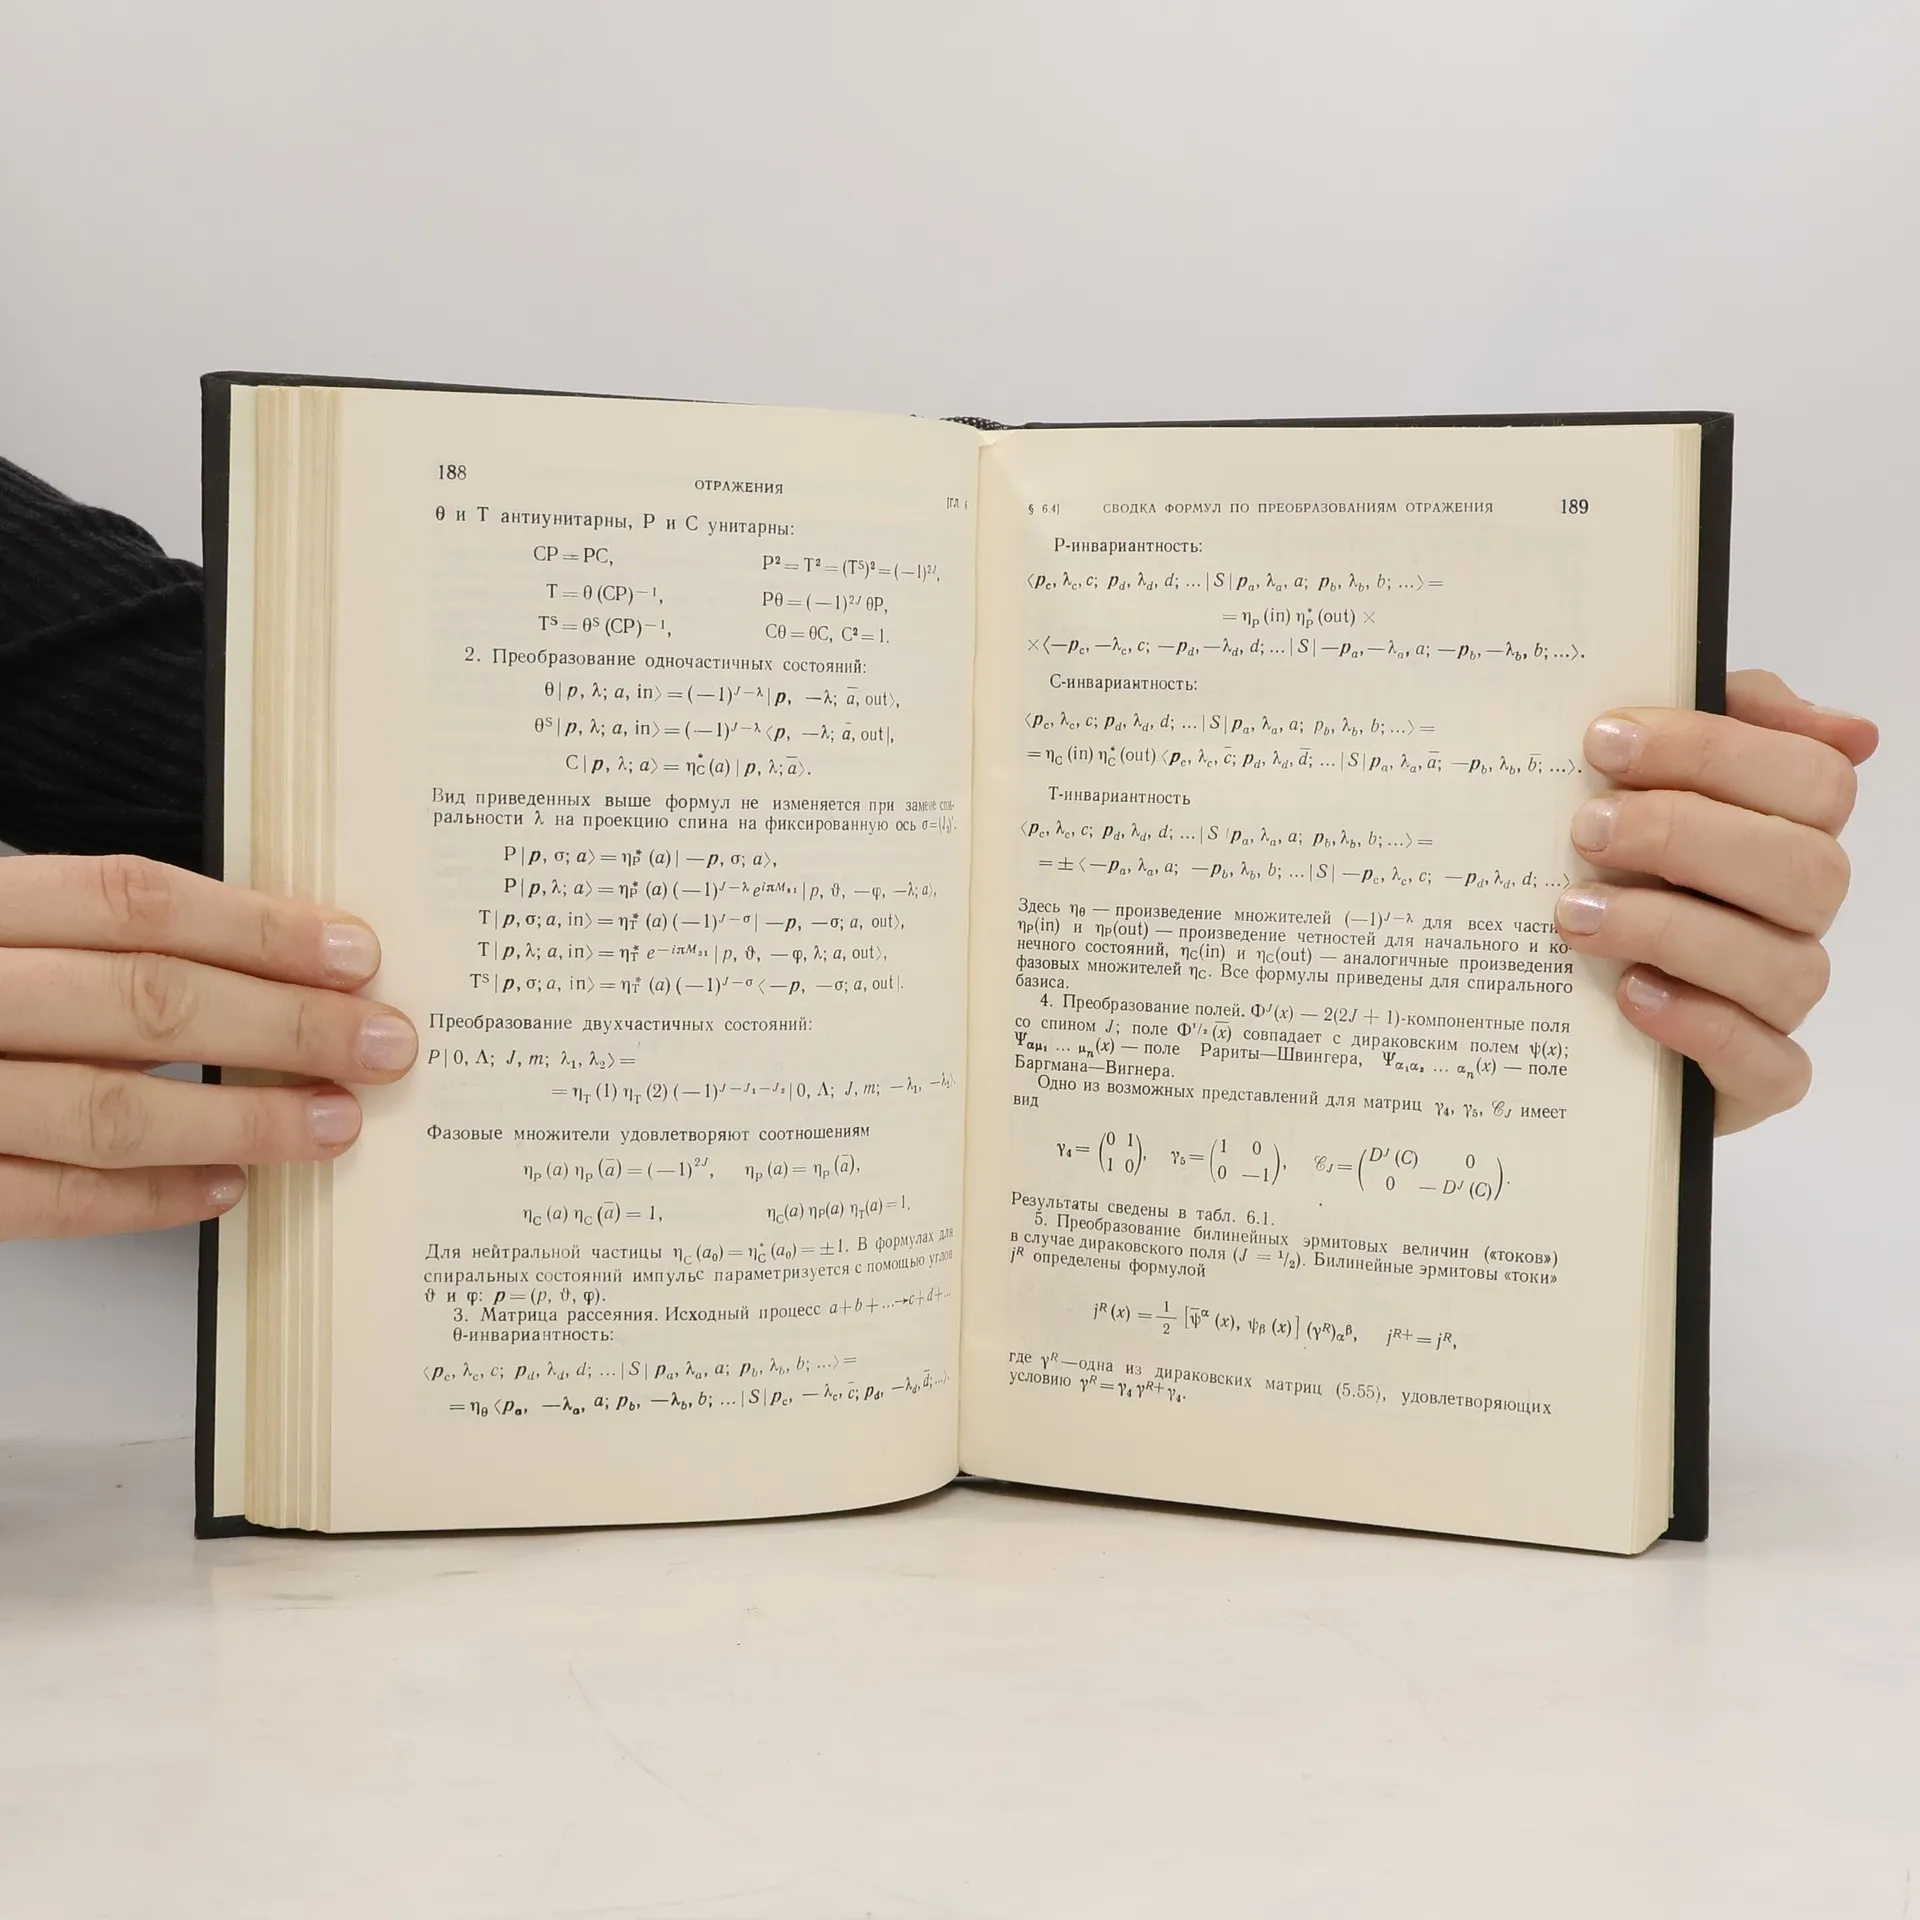 188
ОТРАЖЕНИЯ
[ГЛ
θ и T антиунитарны, P и C унитарны:
CP = PC, P² = T² = (Tˢ)² = (—1)²ᴶ,
T = θ (CP)⁻¹, Pθ = (—1)²ᴶ θP,
Tˢ = θˢ (CP)⁻¹, Cθ = θC, C² = 1.
2. Преобразование одночастичных состояний:
θ | p, λ; a, in⟩ = (—1)ᴶ⁻λ | p, —λ; a̅, out⟩,
θˢ | p, λ; a, in⟩ = (—1)ᴶ⁻λ ⟨p, —λ; a̅, out |,
C | p, λ; a⟩ = η*_C (a) | p, λ; a̅⟩.
Вид приведенных выше формул не изменяется при замене спи-
ральности λ на проекцию спина на фиксированную ось σ=
P | p, σ; a⟩ = η*_P (a) | —p, σ; a⟩,
P | p, λ; a⟩ = η*_P (a) (—1)ᴶ⁻λ e^{iπM₃₁} | p, ϑ, —φ, —λ; a⟩,
T | p, σ; a, in⟩ = η*_T (a) (—1)ᴶ⁻σ | —p, —σ; a, out⟩,
T | p, λ; a, in⟩ = η*_T e^{—iπM₃₁} | p, ϑ, —φ, λ; a, out⟩,
Tˢ | p, σ; a, in⟩ = η*_T (a) (—1)ᴶ⁻σ ⟨—p, —σ; a, out |.
Преобразование двухчастичных состояний:
P | 0, Λ; J, m; λ₁, λ₂⟩ =
= η_T (1) η_T (2) (—1)^{J—J₁—J₂} | 0, Λ; J, m; —λ₁, —λ₂⟩.
Фазовые множители удовлетворяют соотношениям
η_P (a) η_P (a̅) = (—1)²ᴶ, η_P (a) = η_P (a̅),
η_C (a) η_C (a̅) = 1, η_C(a) η_P(a) η_T(a) = 1.
Для нейтральной частицы η_C (a₀) = η*_C (a₀) = ±1. В формулах для
спиральных состояний импульс параметризуется с помощью углов
ϑ и φ: p = (p, ϑ, φ).
3. Матрица рассеяния. Исходный процесс a+b+...→c+d+...
θ-инвариантность:
⟨p_c, λ_c, c; p_d, λ_d, d; ... | S | p_a, λ_a, a; p_b, λ_b, b; ...⟩ =
= η_θ ⟨p_a, —λ_a, a; p_b, —λ_b, b; ... | S | p_c, —λ_c, c̅; p_d, —λ_d, d̅; ...⟩.
§ 6.4] СВОДКА ФОРМУЛ ПО ПРЕОБРАЗОВАНИЯМ ОТРАЖЕНИЯ 189
P-инвариантность:
⟨p_c, λ_c, c; p_d, λ_d, d; ... | S | p_a, λ_a, a; p_b, λ_b, b; ...⟩ =
= η_P (in) η*_P (out) ×
× ⟨—p_c, —λ_c, c; —p_d, —λ_d, d; ... | S | —p_a, —λ_a, a; —p_b, —λ_b, b; ...⟩.
C-инвариантность:
⟨p_c, λ_c, c; p_d, λ_d, d; ... | S | p_a, λ_a, a; p_b, λ_b, b; ...⟩ =
= η_C (in) η*_C (out) ⟨p_c, λ_c, c̅; p_d, λ_d, d̅; ... | S | p_a, λ_a, a̅; —p_b, λ_b, b̅; ...⟩.
T-инвариантность
⟨p_c, λ_c, c; p_d, λ_d, d; ... | S | p_a, λ_a, a; p_b, λ_b, b; ...⟩ =
= ± ⟨—p_a, λ_a, a; —p_b, λ_b, b; ... | S | —p_c, λ_c, c; —p_d, λ_d, d; ...⟩
Здесь η_θ — произведение множителей (—1)ᴶ⁻λ для всех
η_P(in) и η_P(out) — произведение четностей для начального и ко-
нечного состояний, η_C(in) и η_C(out) — аналогичные произведения
фазовых множителей η_C. Все формулы приведены для спирального
базиса.
4. Преобразование полей. Φᴶ(x) — 2(2J + 1)-компонентные поля
со спином J; поле Φ^{1/2} (x̅) совпадает с дираковским полем ψ(x);
Ψ_{αμ₁ ... μₙ}(x) — поле Рариты—Швингера, Ψ_{α₁α₂ ... αₙ}(x) — поле
Баргмана—Вигнера.
Одно из возможных представлений для матриц γ₄, γ₅, 𝒞_J имеет
вид
γ₄ = (0 1; 1 0), γ₅ = (1 0; 0 —1), 𝒞_J = (Dᴶ (C) 0; 0 —Dᴶ (C)).
Результаты сведены в табл. 6.1.
5. Преобразование билинейных эрмитовых величин («токов»)
в случае дираковского поля (J = ¹/₂). Билинейные эрмитовы «токи»
jᴿ определены формулой
jᴿ (x) = 1/2 [ψ̅^α (x), ψ_β (x)] (γᴿ)_α^β, jᴿ⁺ = jᴿ,
где γᴿ — одна из дираковских матриц (5.55), удовлетворяющих
условию γᴿ = γ₄ γᴿ⁺ γ₄.